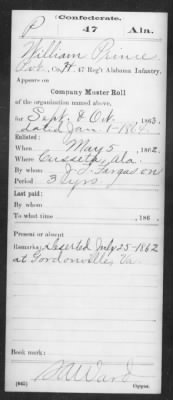 (Confederate.)
P 47 Ala.
William Prince
Pvt, Co. H, 47 Reg't Alabama Infantry.
Appears on
Company Muster Roll
of the organization named above,
for Sept & Oct, 1863.
dated Jan 1-1864
Enlisted:
When May 5, 1862.
Where Cusseta, Ala.
By whom J. L. Fargason
Period 3 yrs.
Last paid:
By whom
To what time , 186 .
Present or absent
Remarks: Deserted July 25-1862
at Gordonville, Va.
Book mark:
Ward
(642) Copyist.